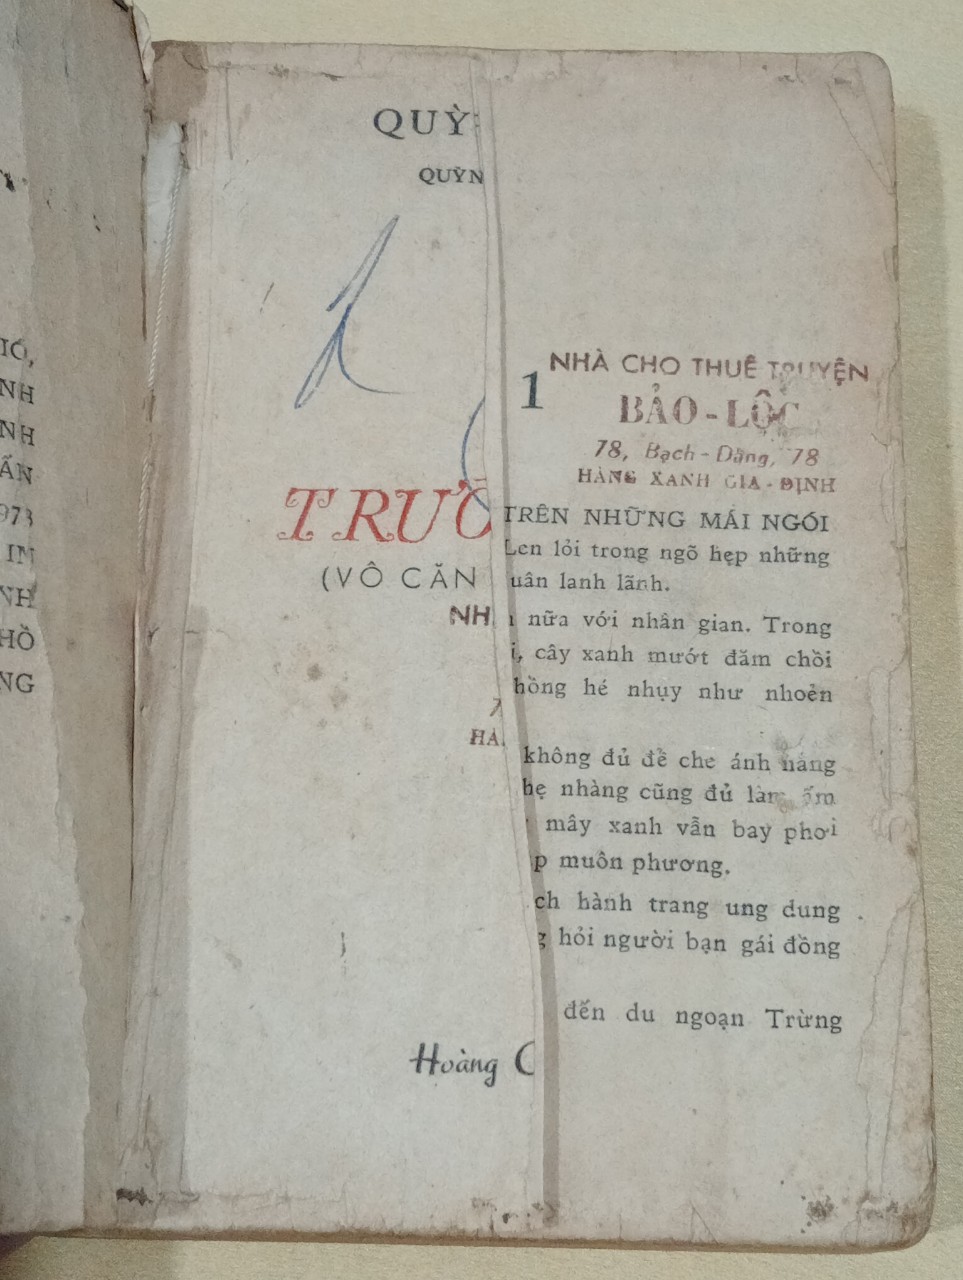 IÓ,
NH
NH
ẤN
973
IN
NH
HỒ
NG
QUỲ
QUỲN
TRƯỜ
(VÔ CĂN
NH
HÀ
Hoàng
1
NHÀ CHO THUÊ TRUYỆN
BẢO-LỘC
78, Bạch-Đằng, 78
HÀNG XANH GIA-ĐỊNH
TRÊN NHỮNG MÁI NGÓI
Len lỏi trong ngõ hẹp những
uân lanh lãnh.
nữa với nhân gian. Trong
i, cây xanh mướt đăm chồi
hồng hé nhụy như nhoẻn
không đủ để che ánh nắng
hẹ nhàng cũng đủ làm ấm
mây xanh vẫn bay phơi
p muôn phương.
ch hành trang ung dung
g hỏi người bạn gái đồng
đến du ngoạn Trừng